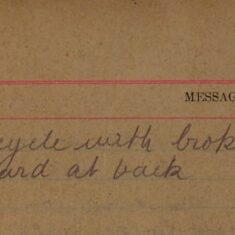 MESSAG
cycle with brok
ard at back